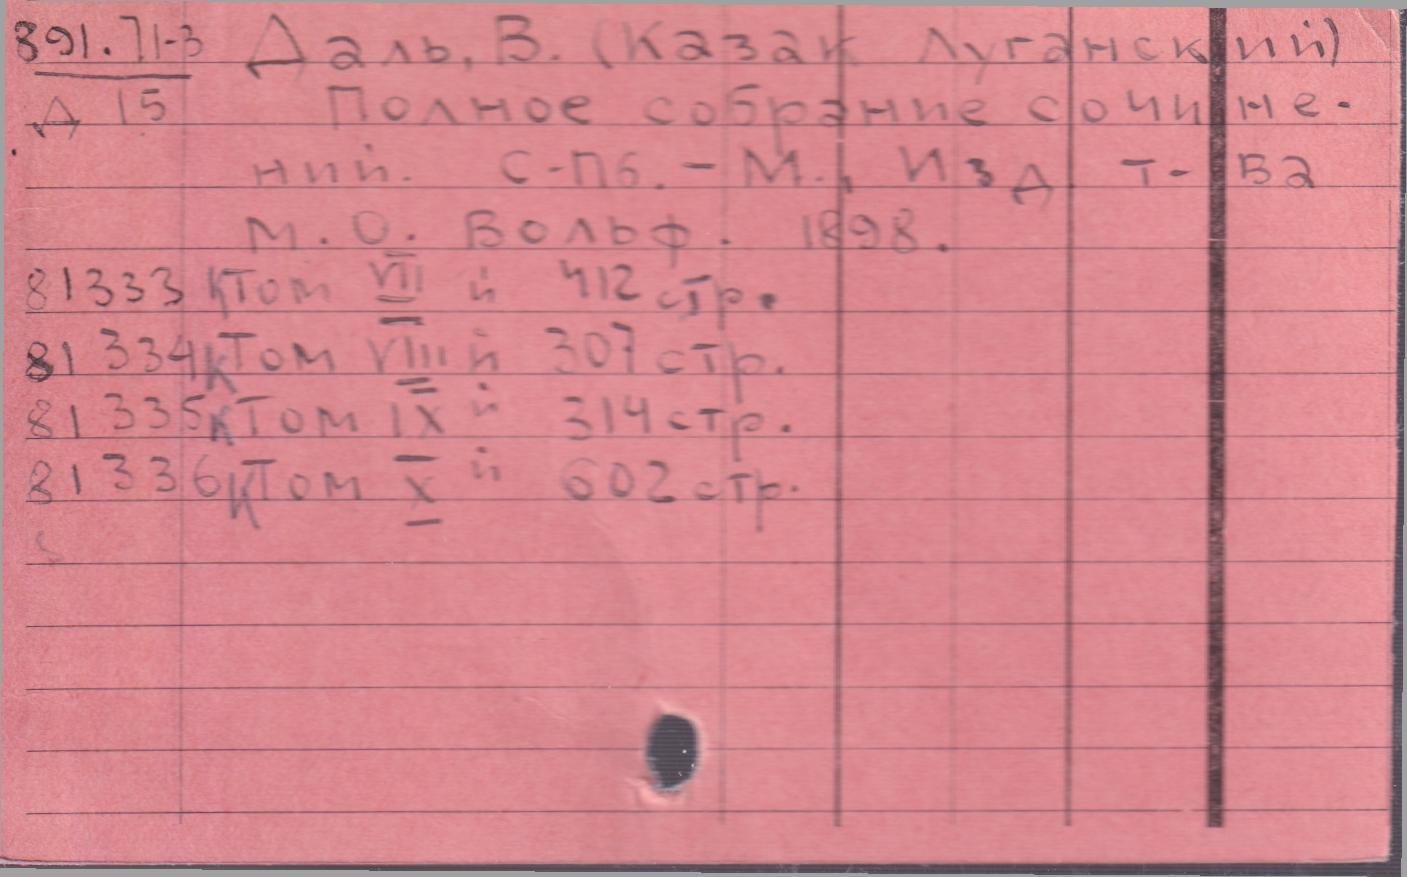 891.71-3 Даль, В. (Казак Луганский)
Д 15 Полное собрание сочине-
ний. С-Пб. - М., Изд. т-ва
М. О. Вольф. 1898.
81333к Том VII й 412 стр.
81334к Том VIII й 307 стр.
81335к Том IX й 314 стр.
81336к Том X й 602 стр.